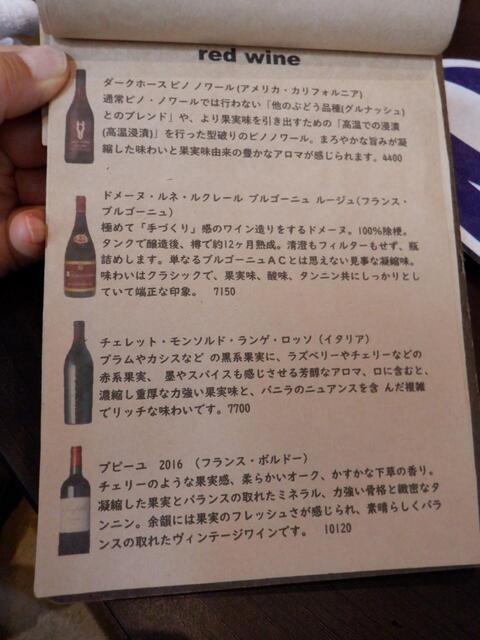 red wine
ダークホース ピノ ノワール(アメリカ・カリフォルニア)
通常ピノ・ノワールでは行わない「他のぶどう品種(グルナッシュ)
とのブレンド」や、より果実味を引き出すための「高温での浸漬
(高温浸漬)」を行った型破りのピノノワール。まろやかな旨みが凝
縮した味わいと果実味由来の豊かなアロマが感じられます。4400
ドメーヌ・ルネ・ルクレール ブルゴーニュ ルージュ(フランス・
ブルゴーニュ)
極めて「手づくり」感のワイン造りをするドメーヌ。100%除梗。
タンクで醸造後、樽で約12ヶ月熟成。清澄もフィルターもせず、瓶
詰めします。単なるブルゴーニュACとは思えない見事な凝縮味。
味わいはクラシックで、果実味、酸味、タンニン共にしっかりとし
ていて端正な印象。 7150
チェレット・モンソルド・ランゲ・ロッソ(イタリア)
プラムやカシスなど の黒系果実に、ラズベリーやチェリーなどの
赤系果実、 墨やスパイスも感じさせる芳醇なアロマ、口に含むと、
濃縮し重厚な力強い果実味と、バニラのニュアンスを含 んだ複雑
でリッチな味わいです。7700
プピーユ 2016 (フランス・ボルドー)
チェリーのような果実感、柔らかいオーク、かすかな下草の香り。
凝縮した果実とバランスの取れたミネラル、力強い骨格と緻密なタ
ンニン。余韻には果実のフレッシュさが感じられ、素晴らしくバラ
ンスの取れたヴィンテージワインです。 10120